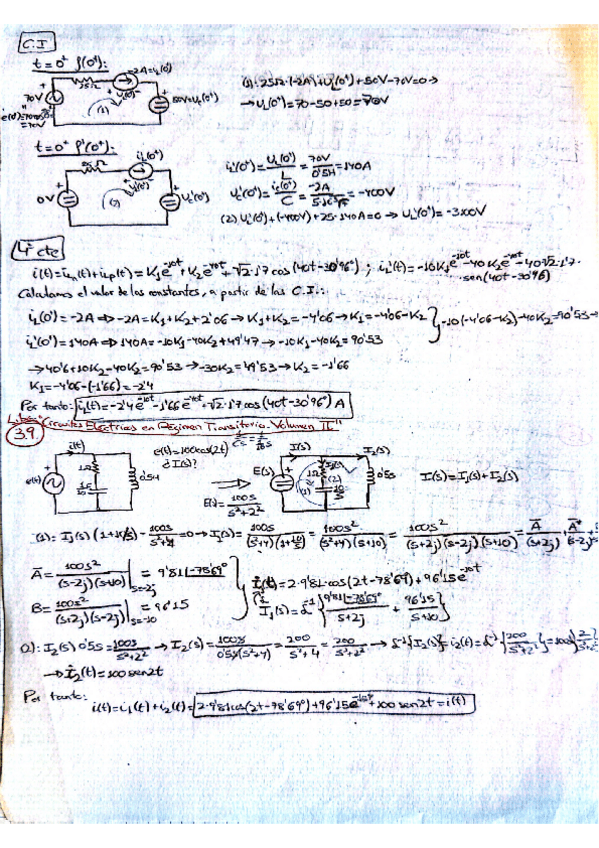 C.I
t=0⁺ f(0⁺):
25Ω -2A=iL(0⁺)
70V (1) UL(0⁺) 50V=Uc(0⁺)
=70V
(1): 25Ω·(-2A)+UL(0⁺)+50V-70V=0→
→UL(0⁺)=70-50+50=70V
t=0⁺ f'(0⁺):
25Ω iL'(0⁺)
0V (2) UL'(0⁺) Uc'(0⁺)
iL'(0⁺)=UL(0⁺)/L=70V/0'5H=140A
Uc'(0⁺)=ic(0⁺)/C=-2A/5·10⁻³F=-400V
(2) UL'(0⁺)+(-400V)+25·140A=0→UL'(0⁺)=-3100V
4º cte
i(t)=iLn(t)+iLp(t)=K1e^-10t+K2e^-40t+√2·1'7cos(40t-30'96°); iL'(t)=-10K1e^-10t-40K2e^-40t-40√2·1'7·
·sen(40t-30'96)
Calculamos el valor de las constantes, a partir de las C.I.:
iL(0⁺)=-2A⇒-2A=K1+K2+2'06→K1+K2=-4'06→K1=-4'06-K2
iL'(0⁺)=140A⇒140A=-10K1-40K2+49'47→-10K1-40K2=90'53
}-10(-4'06-K2)-40K2=90'53→
→40'6+10K2-40K2=90'53→-30K2=49'53→K2=-1'66
K1=-4'06-(-1'66)=-2'4
Por tanto: iL(t)=-2'4e^-10t-1'66e^-40t+√2·1'7cos(40t-30'96°)A
Libro: "Circuitos Eléctricos en Régimen Transitorio. Volumen II"
3.9.
i(t)
e(t) 1Ω 1/10F 0'5H
e(t)=100cos(2t)
¿I(s)?
E(s)=100s/(s²+2²)
I(s) I2(s)
E(s) 1Ω I1(s) (1) (2) 10/s 0'5s
I(s)=I1(s)+I2(s)
(1): I1(s)(1+10/s)-100s/(s²+4)=0→I1(s)=100s/((s²+4)(1+10/s))=100s²/((s²+4)(s+10))=100s²/((s+2j)(s-2j)(s+10))=A/(s+2j)+A*/(s-2j)
A=100s²/((s-2j)(s+10))|s=-2j=9'81|-78'69°
B=100s²/((s+2j)(s-2j))|s=-10=96'15
i1(t)=2·9'81·cos(2t-78'69)+96'15e^-10t
i1(s)=L⁻¹{9'81|-78'69°/(s+2j)+96'15/(s+10)}
2): I2(s)0'5s=100s/(s²+2²)→I2(s)=100s/(0'5s(s²+4))=200/(s²+4)=200/(s²+2²)→L⁻¹{I2(s)}=i2(t)=L⁻¹{200/(s²+2²)}=100
→i2(t)=100sen2t
Por tanto:
i(t)=i1(t)+i2(t)=2·9'81cos(2t-78'69°)+96'15e^-10t+100sen2t=i(t)